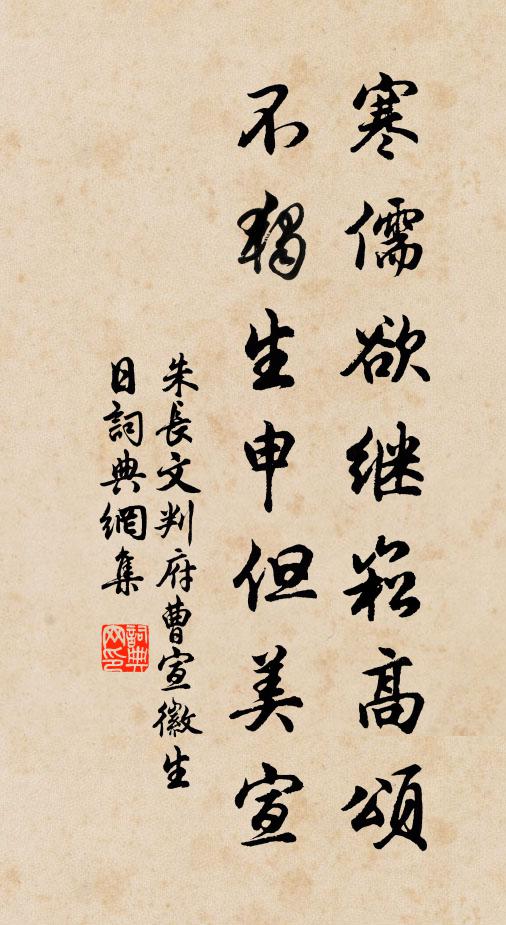 寒儒欲继崧高頌
不獨生申但美宣
朱長文判府曹宣徽生
日詞典網集
詞典
网印